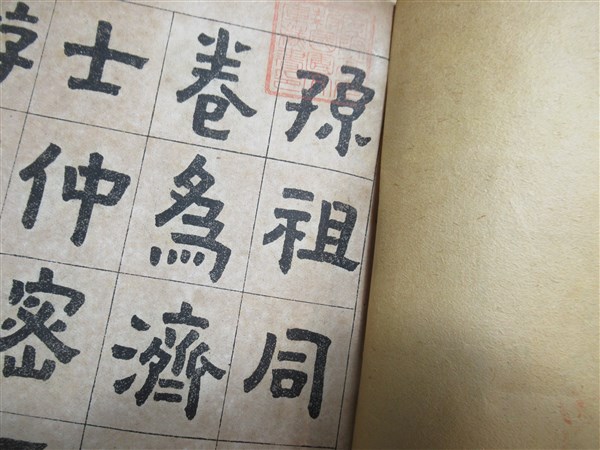 孫祖同
卷爲濟
士仲密